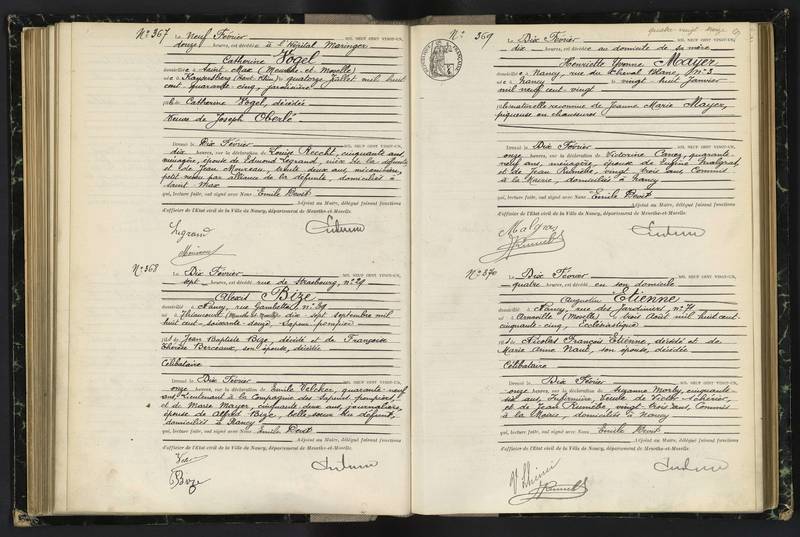 N° 367 Le Neuf Février MIL NEUF CENT VINGT-UN,
douze heures, est décédée à l'Hôpital Maringer
Catherine Vogel
domiciliée à Saint-Max (Meurthe-et-Moselle)
née à Kaysersberg (Haut-Rhin) le quatorze Juillet mil huit
cent quarante-cinq, jardinière
fille de Catherine Vogel, décédée
Veuve de Joseph Oberlé
Dressé le Dix Février MIL NEUF CENT VINGT-UN,
dix heures, sur la déclaration de Louise Reecht, cinquante ans
ménagère, épouse de Edmond Legrand, nièce de la défunte
et de Jean Mouveau, trente deux ans, mécanicien,
petit neveu par alliance de la défunte, domiciliés à
Saint Max
qui, lecture faite, ont signé avec Nous Emile Devit
Adjoint au Maire, délégué faisant fonctions
d'officier de l'État civil de la Ville de Nancy, département de Meurthe-et-Moselle.
Legrand
N° 368 Le Dix Février MIL NEUF CENT VINGT-UN,
sept heures, est décédé rue de Strasbourg, n° 29
Alexis Bize
domicilié à Nancy, rue Gambetta, n° 29
né à Thiaucourt (Meurthe-et-Moselle) dix-sept septembre mil
huit cent soixante-douze, Sapeur-pompier
fils de Jean Baptiste Bize, décédé et de Françoise
Thérèse Berceaux, son épouse, décédée
Célibataire
Dressé le Dix Février MIL NEUF CENT VINGT-UN,
onze heures, sur la déclaration de Emile Velcker, quarante neuf
ans, Lieutenant à la Compagnie des Sapeurs pompiers
et de Marie Mayer, cinquante deux ans, journalière,
épouse de Alfred Bize, belle-sœur du défunt,
domiciliés à Nancy
qui, lecture faite, ont signé avec Nous Emile Devit
Adjoint au Maire, délégué faisant fonctions
d'officier de l'État civil de la Ville de Nancy, département de Meurthe-et-Moselle.
Bize
quatre-vingt-onze
N° 369 Le Dix Février MIL NEUF CENT VINGT-UN,
dix heures, est décédée au domicile de sa mère
Henriette Yvonne Mayer
domiciliée à Nancy, rue du Cheval Blanc, n° 3
née à Nancy le vingt-huit Janvier
mil neuf cent vingt
fille naturelle reconnue de Jeanne Marie Mayer,
piqueuse en chaussures
Dressé le Dix Février MIL NEUF CENT VINGT-UN,
onze heures, sur la déclaration de Victorine Carcy, quarante-
neuf ans, ménagère, épouse de Eugène Malgras
et de Jean Ruinette, vingt trois ans, Commis
à la Mairie, domiciliés à Nancy
qui, lecture faite, ont signé avec Nous Emile Devit
Adjoint au Maire, délégué faisant fonctions
d'officier de l'État civil de la Ville de Nancy, département de Meurthe-et-Moselle.
Malgras
N° 370 Le Dix Février MIL NEUF CENT VINGT-UN,
quatre heures, est décédé en son domicile
Augustin Etienne
domicilié à Nancy, rue des Jardiniers, n° 71
né à Arnaville (Moselle) trois Août mil huit cent
cinquante-cinq, Ecclésiastique
fils de Nicolas François Etienne, décédé et de
Marie Anne Naul, son épouse, décédée
Célibataire
Dressé le Dix Février MIL NEUF CENT VINGT-UN,
onze heures, sur la déclaration de Suzanne Morly, cinquante
six ans, Infirmière, Veuve de Victor Lhérier,
et de Jean Ruinette, vingt-trois ans, Commis
à la Mairie, domiciliés à Nancy
qui, lecture faite, ont signé avec Nous Emile Devit
Adjoint au Maire, délégué faisant fonctions
d'officier de l'État civil de la Ville de Nancy, département de Meurthe-et-Moselle.